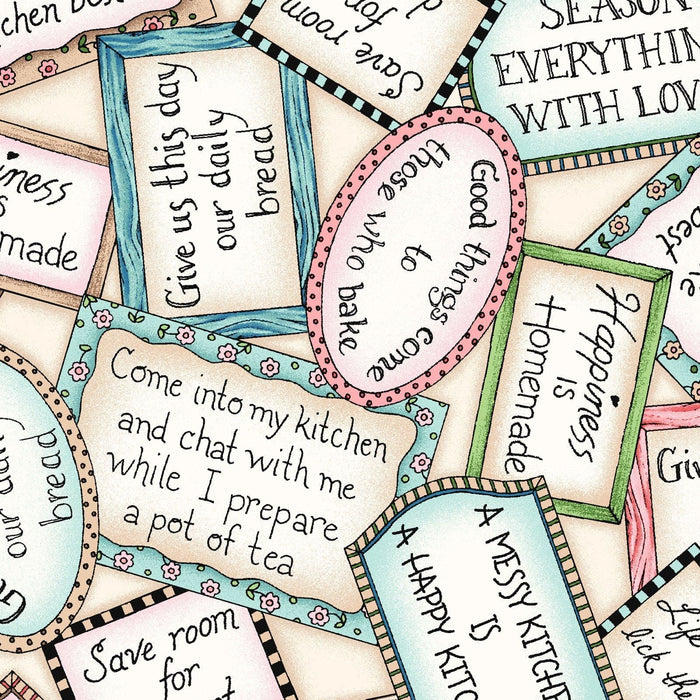 Save room
for
SEASON
EVERYTHIN
WITH LOV
Give us this day
our daily
bread
Good things come
to
those who bake
made
Happiness
is
Homemade
Come into my kitchen
and chat with me
while I prepare
a pot of tea
our daily
bread
A MESSY KITCHE
IS
A HAPPY KITC
Save room
for
lick the